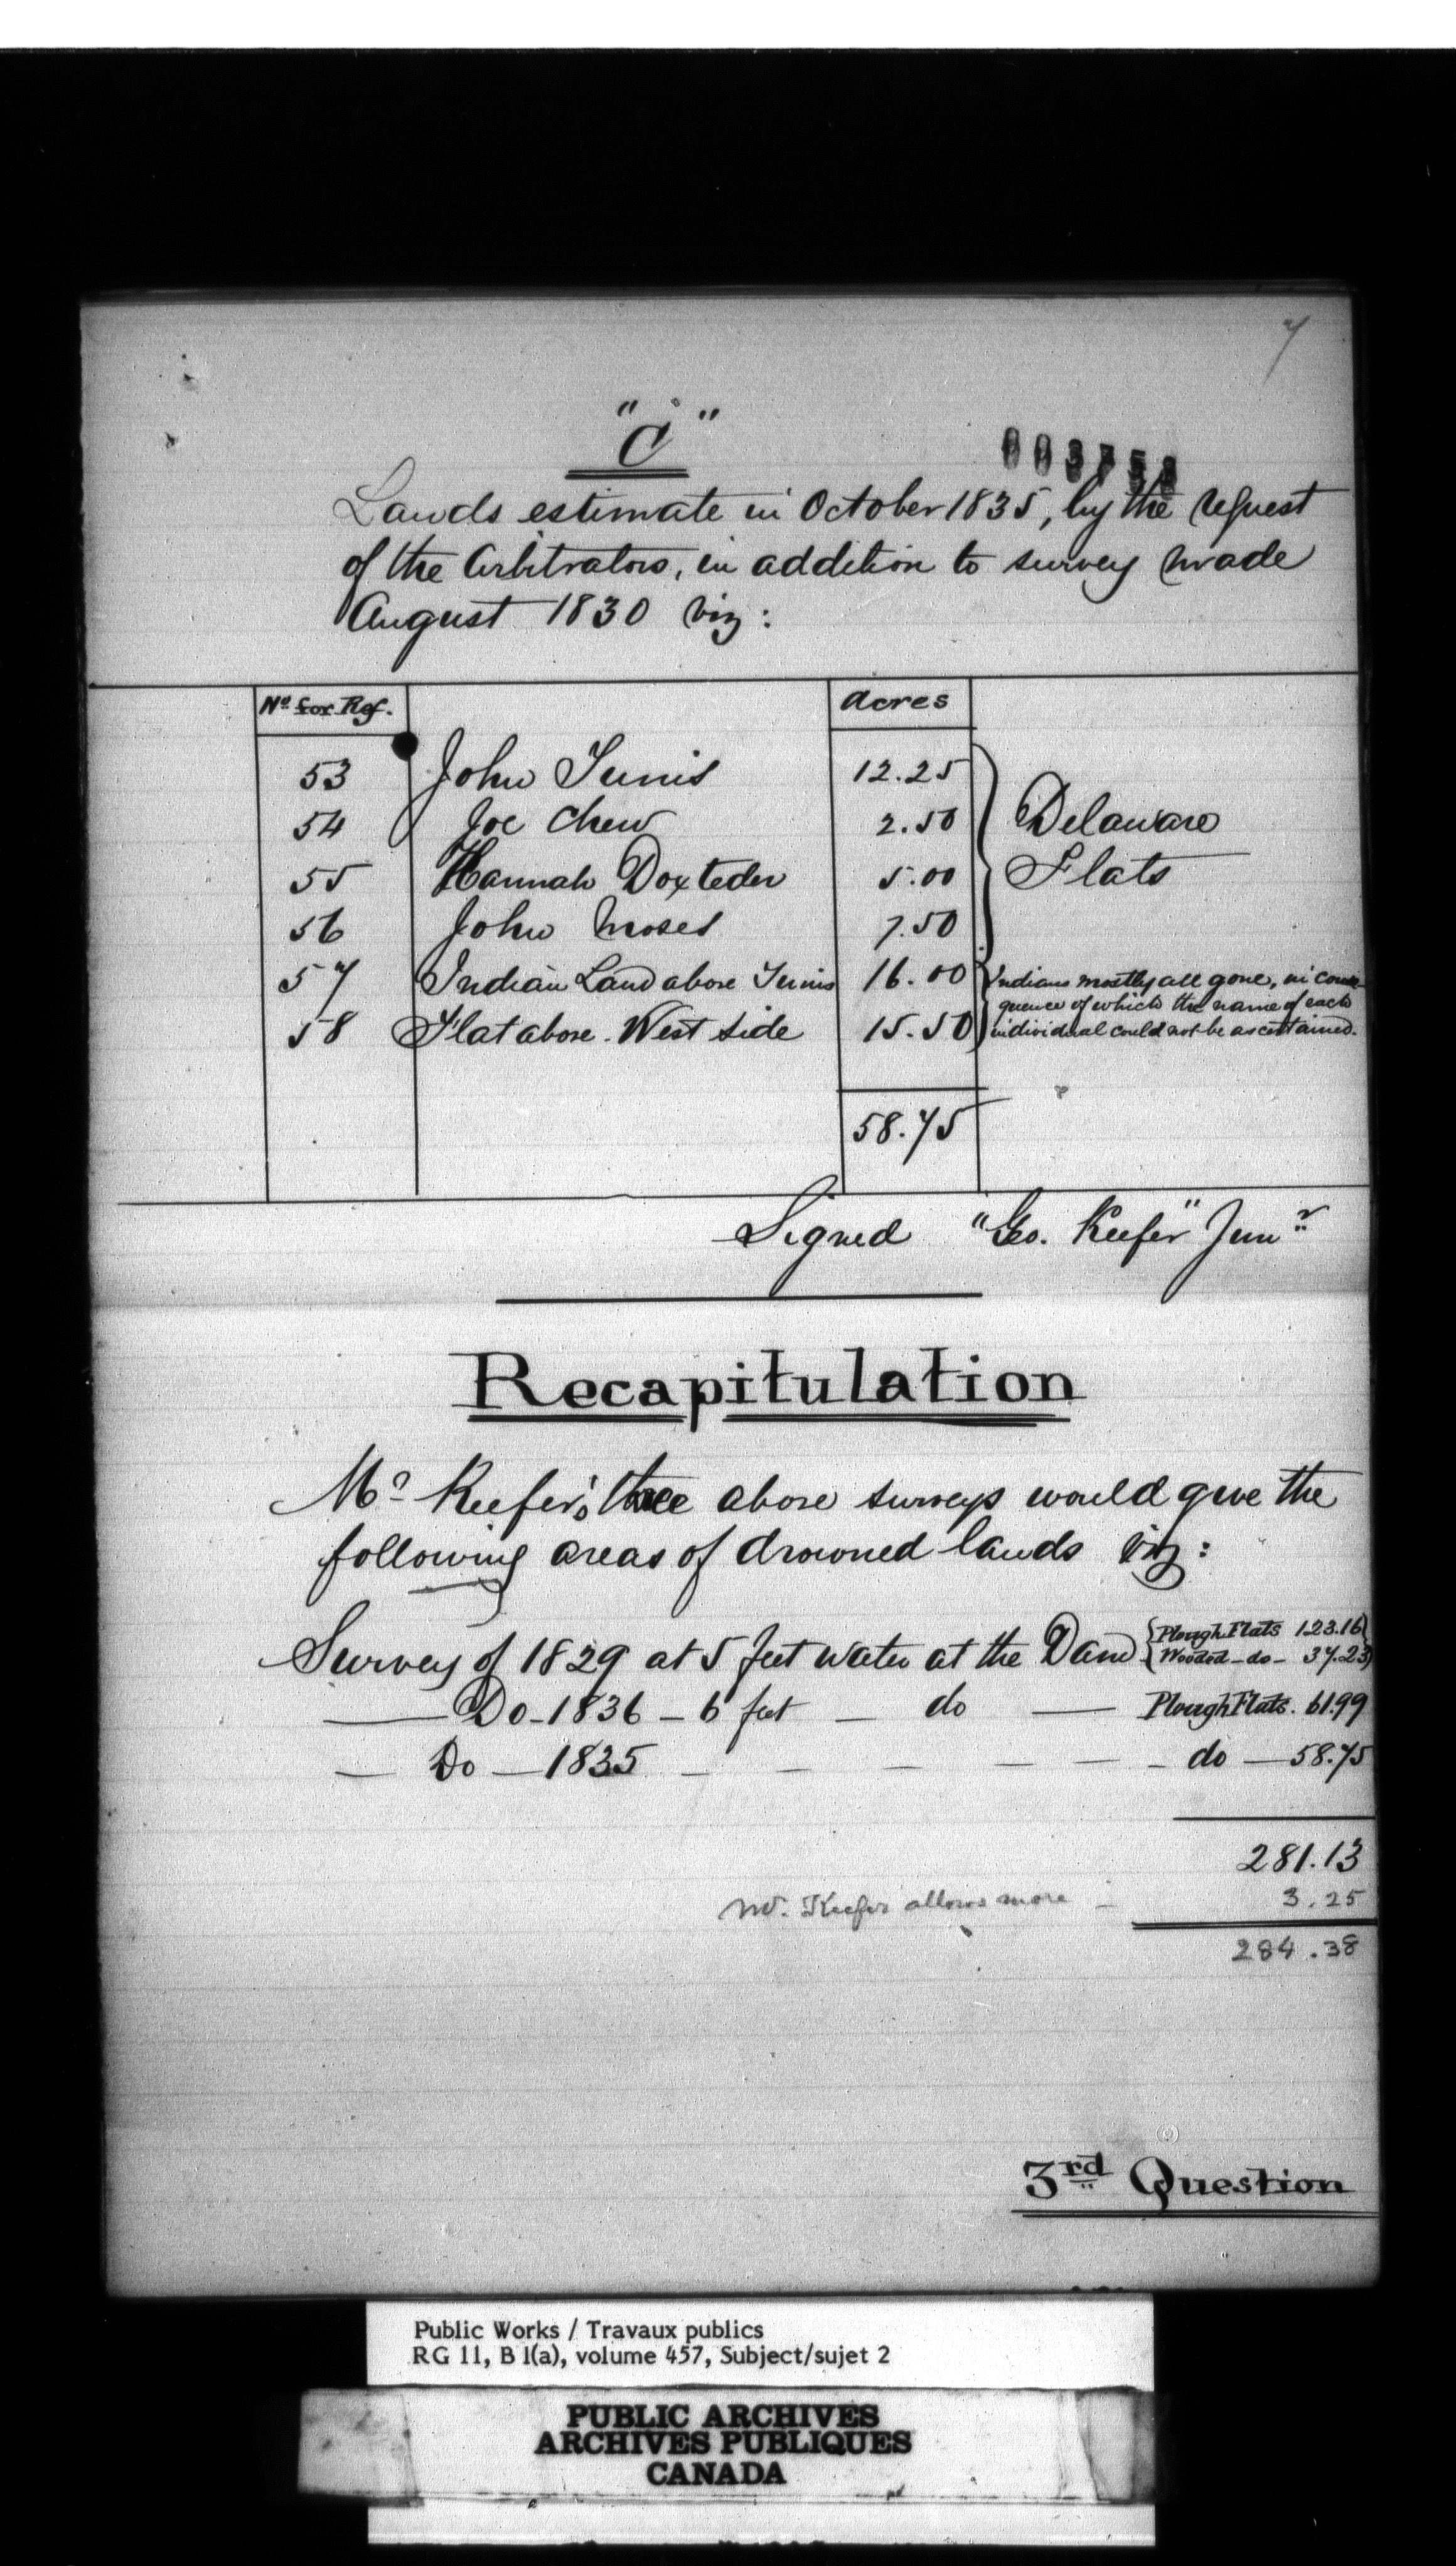 7
"C"
Lands estimate in October 1835, by the request
of the Arbitrators, in addition to survey made
August 1830 viz:
No for Ref. Acres
53 John Tunis 12.25
54 Joe Chew 2.50 Delaware
55 Hannah Doxteder 5.00 Flats
56 John Moses 7.50
57 Indian Land above Tunis 16.00 Indians mostly all gone, in conse-
quence of which the name of each
58 Flat above. West side 15.50 individual could not be ascertained.
58.75
Signed "Geo. Keefer" Junr
Recapitulation
Mr Keefer's three above surveys would give the
following areas of drowned lands viz:
Survey of 1829 at 5 feet water at the Dam { Plough Flats 123.16
Wooded - do - 37.23
Do - 1836 - 6 feet - do - Plough Flats. 61.99
- Do - 1835 - - - - - - do - 58.75
281.13
Mr. Keefer allows more - 3.25
284.38
3rd Question
Public Works / Travaux publics
RG 11, B 1(a), volume 457, Subject/sujet 2
PUBLIC ARCHIVES
ARCHIVES PUBLIQUES
CANADA